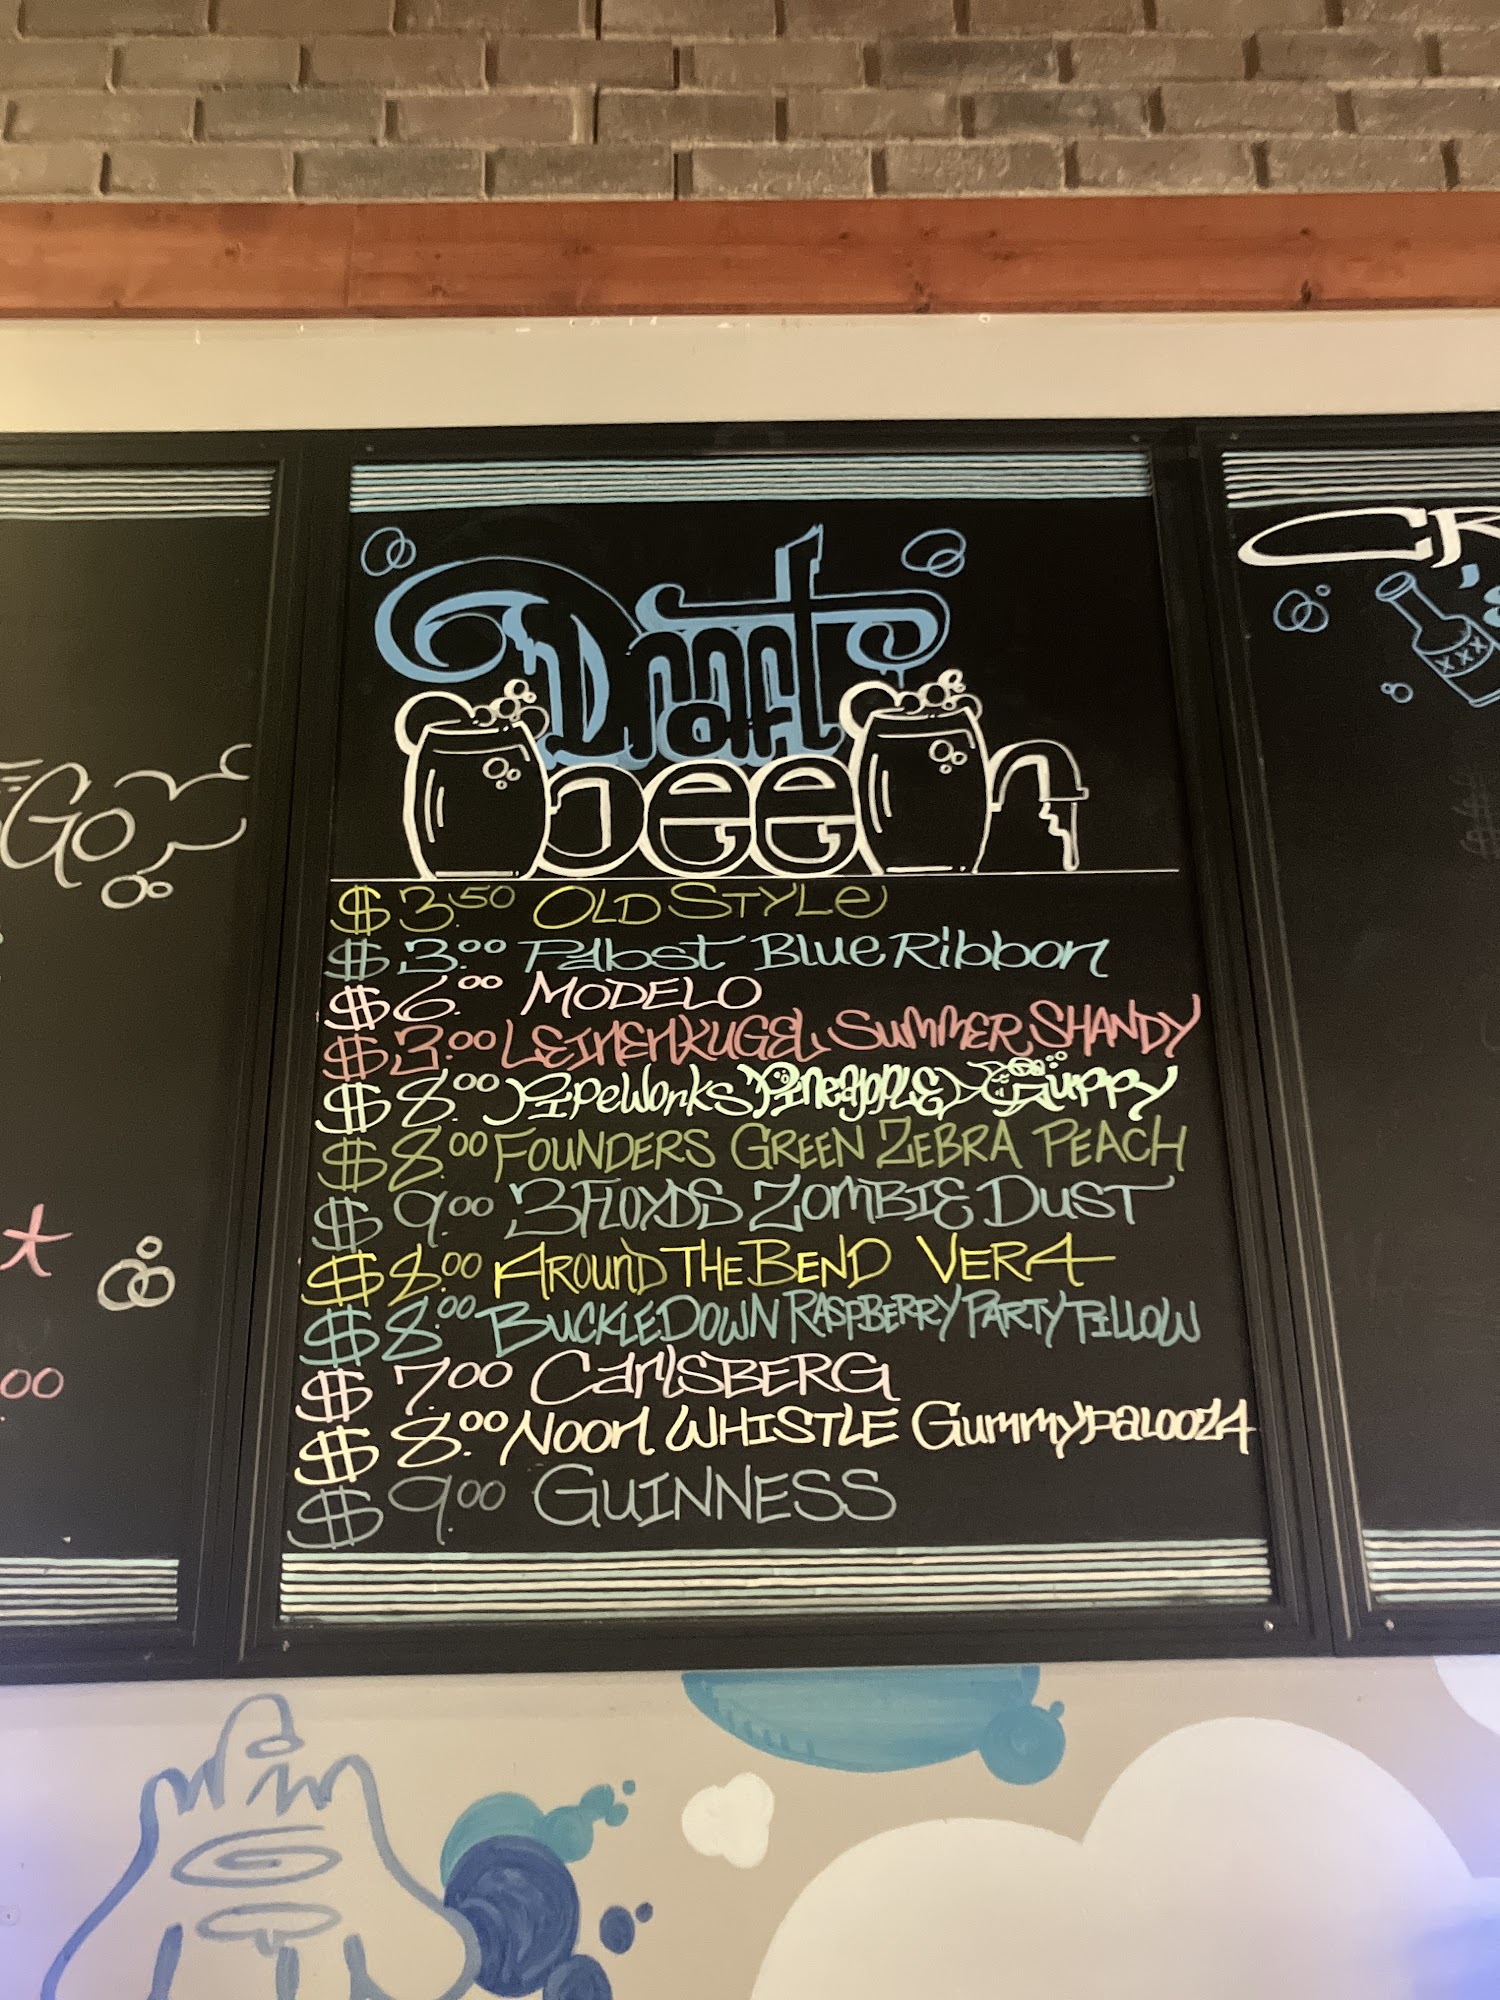 Draft
Beer
$3.50 OLD STYLE
$3.00 Pabst Blue Ribbon
$6.00 MODELO
$3.00 LEINENKUGEL SUMMER SHANDY
$8.00 PipeWorks PineApPLE Guppy
$8.00 FOUNDERS GREEN ZEBRA PEACH
$9.00 3 FLOYDS ZOMBIE DUST
$8.00 AROUND THE BEND VERA
$8.00 BUCKLEDOWN RASPBERRY PARTY PILLOW
$7.00 CarlsBERG
$8.00 Noon WHISTLE Gummypalooza
$9.00 GUINNESS
Go
.00
CR
XXX